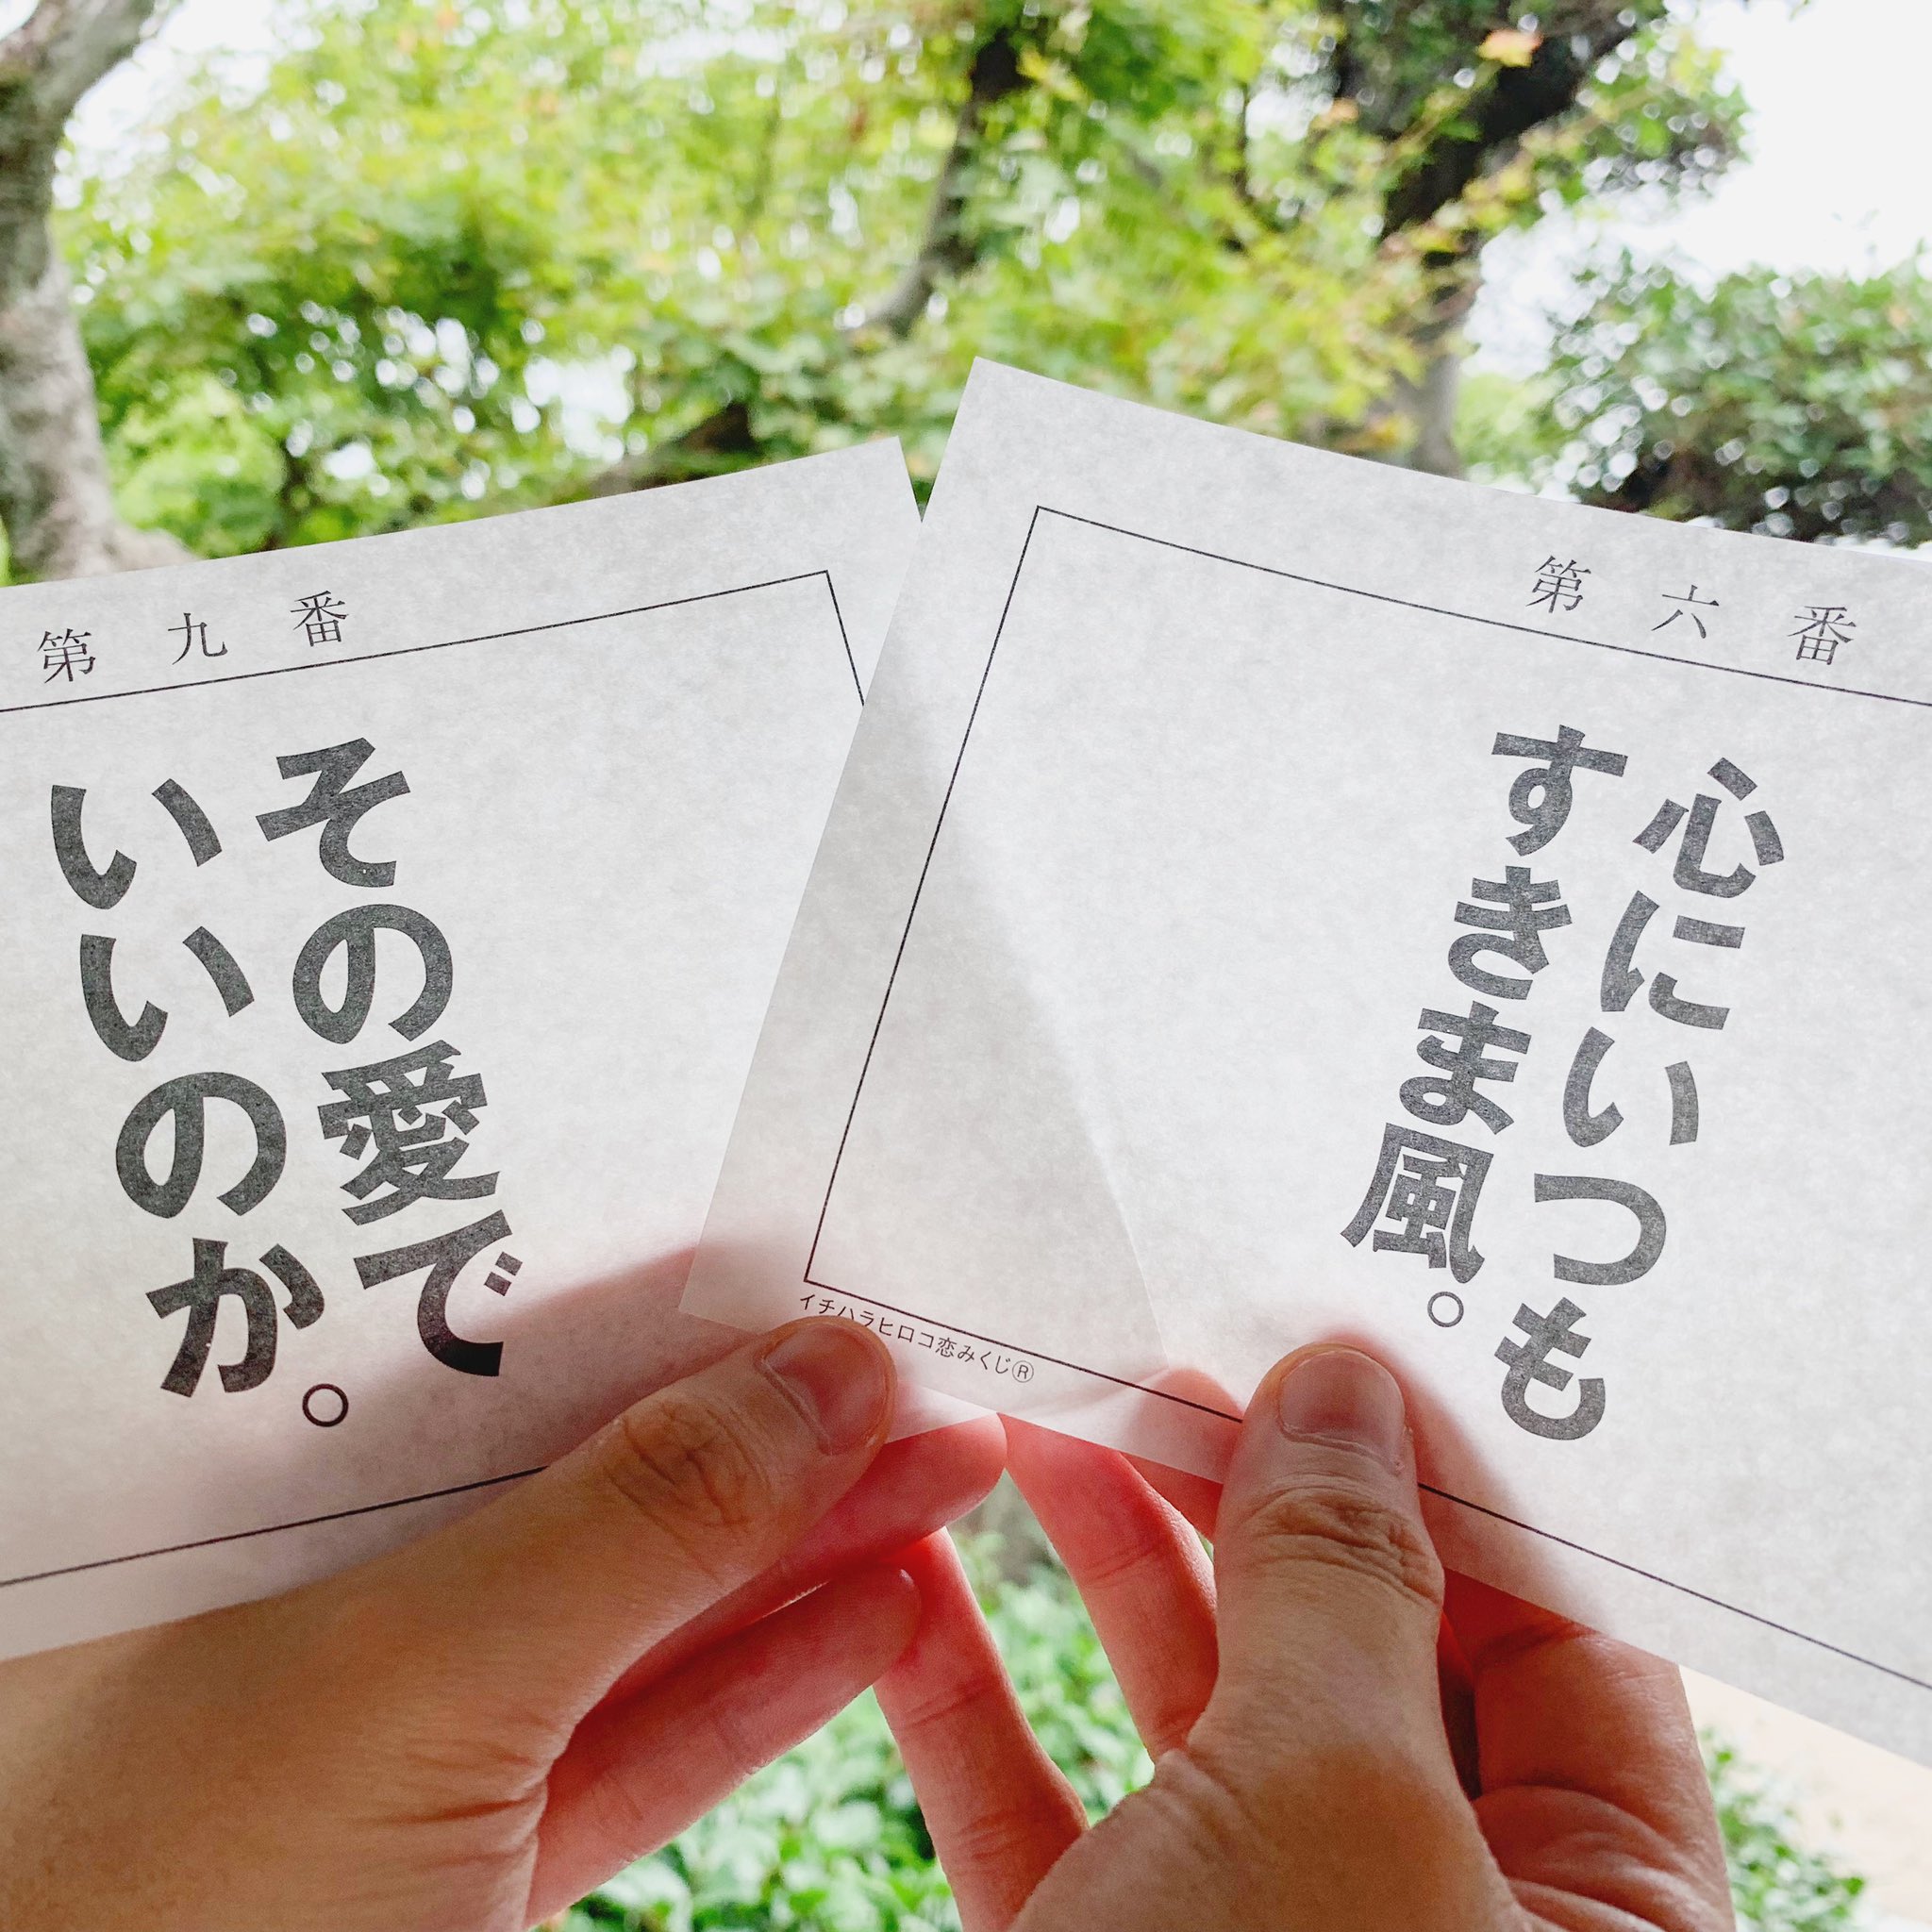 第九番
その愛で
いいのか。
第六番
心にいつも
すきま風。
イチハラヒロコ恋みくじ®